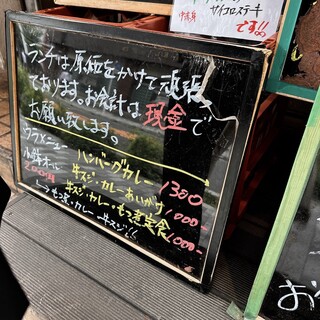 サイコロステーキ
です!!
ランチは原価をかけて頑張っ
ております。お会計は現金で
お願い致します。
ウラメニュー
ハンバーグカレー 1380
牛スジ・カレーあいがけ 1000-
牛スジ・カレー・もつ煮定食 1000-
もつ煮・カレー・牛スジ!!
お